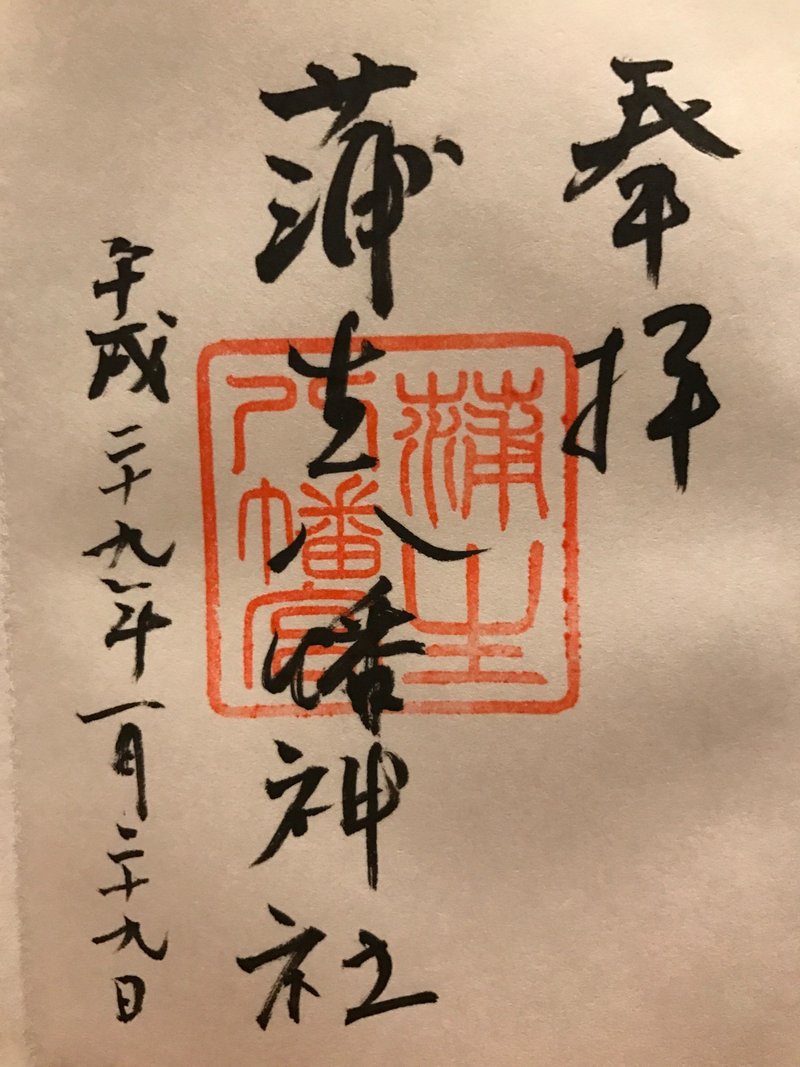 奉拝
蒲生八幡神社
蒲生
八幡宮
平成二十九年一月二十九日